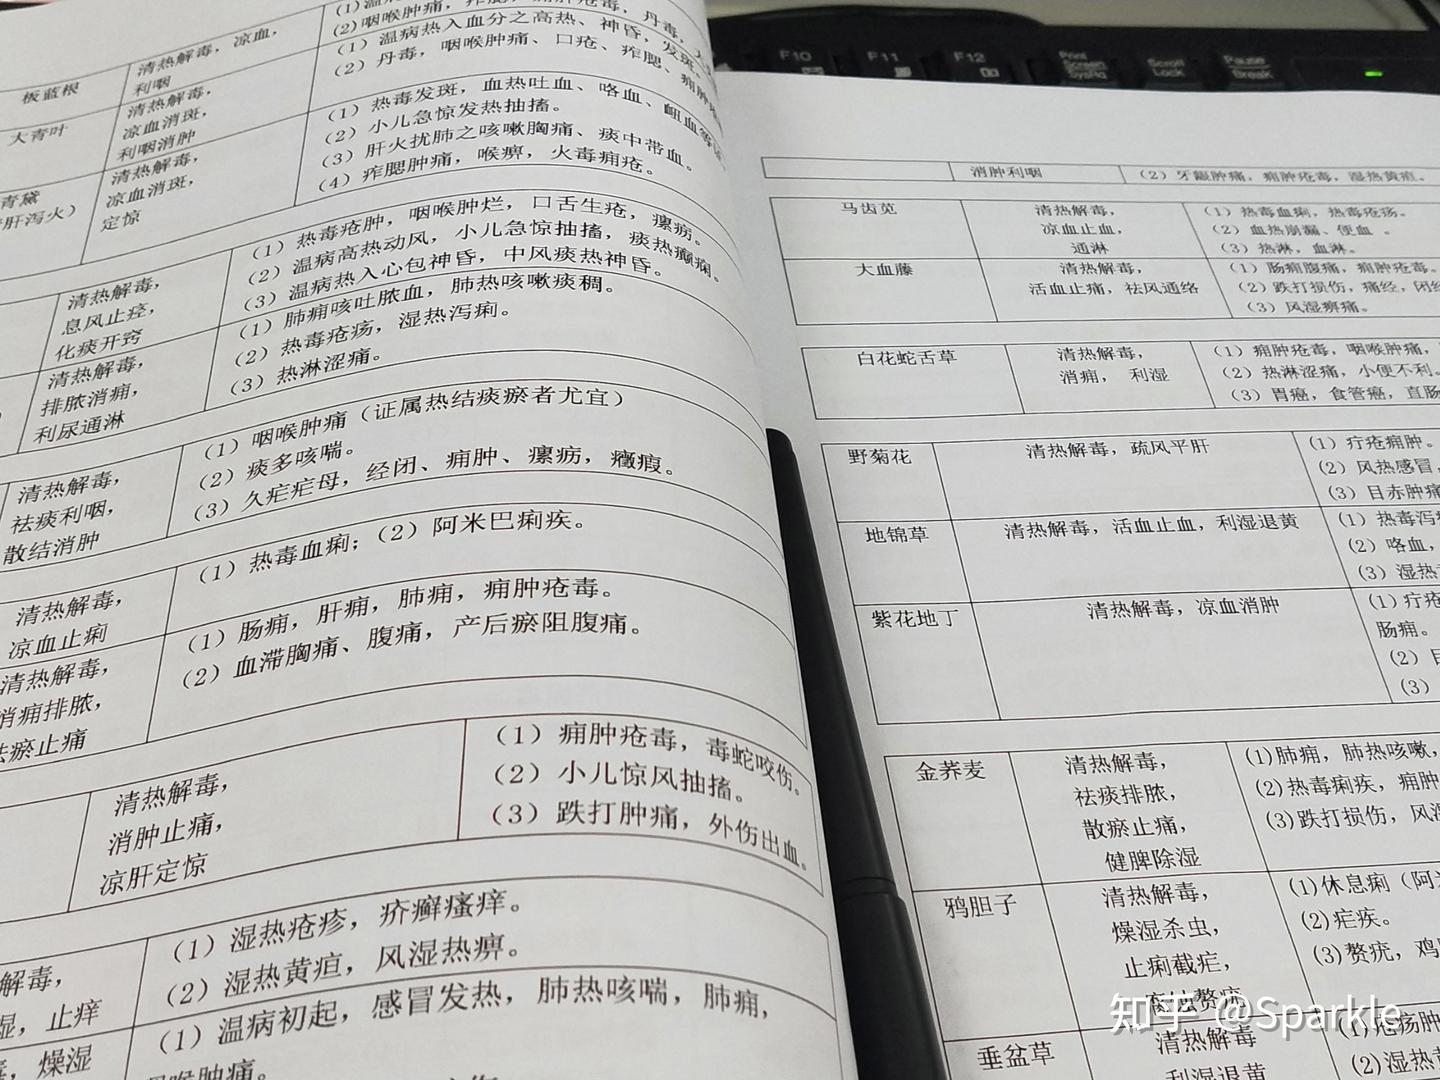 F10
F11
F12
Print
Screen
SysRq
Scroll
Lock
Pause
Break
板蓝根
清热解毒，凉血，
利咽
(2)咽喉肿痛，
大青叶
清热解毒，
凉血消斑，
利咽消肿
（1）温病热入血分之高热、神昏，发斑
（2）丹毒，咽喉肿痛、口疮、痄腮、
青黛
肝泻火）
清热解毒，
凉血消斑，
定惊
（1）热毒发斑，血热吐血、咯血、衄血等
（2）小儿急惊发热抽搐。
（3）肝火扰肺之咳嗽胸痛、痰中带血。
（4）痄腮肿痛，喉痹，火毒痈疮。
清热解毒，
息风止痉，
化痰开窍
（1）热毒疮肿，咽喉肿烂，口舌生疮，瘰疬。
（2）温病高热动风，小儿急惊抽搐，痰热癫痫。
（3）温病热入心包神昏，中风痰热神昏。
清热解毒，
排脓消痈，
利尿通淋
（1）肺痈咳吐脓血，肺热咳嗽痰稠。
（2）热毒疮疡，湿热泻痢。
（3）热淋涩痛。
清热解毒，
祛痰利咽，
散结消肿
（1）咽喉肿痛（证属热结痰瘀者尤宜）
（2）痰多咳喘。
（3）久疟疟母，经闭、痈肿、瘰疬，癥瘕。
清热解毒，
凉血止痢
（1）热毒血痢；（2）阿米巴痢疾。
清热解毒，
消痈排脓，
祛瘀止痛
（1）肠痈，肝痈，肺痈，痈肿疮毒。
（2）血滞胸痛、腹痛，产后瘀阻腹痛。
清热解毒，
消肿止痛，
凉肝定惊
（1）痈肿疮毒，毒蛇咬伤。
（2）小儿惊风抽搐。
（3）跌打肿痛，外伤出血。
解毒，
湿，止痒
（1）湿热疮疹，疥癣瘙痒。
（2）湿热黄疸，风湿热痹。
，燥湿
（1）温病初起，感冒发热，肺热咳喘，肺痈，
喉肿痛。
消肿利咽
（2）牙龈肿痛，痈肿疮毒，湿热黄疸。
马齿苋
清热解毒，
凉血止血，
通淋
（1）热毒血痢，热毒疮疡。
（2）血热崩漏、便血 。
（3）热淋，血淋。
大血藤
清热解毒，
活血止痛，祛风通络
（1）肠痈腹痛，痈肿疮毒。
（2）跌打损伤，痛经，闭经
（3）风湿痹痛。
白花蛇舌草
清热解毒，
消痈， 利湿
（1）痈肿疮毒，咽喉肿痛，
（2）热淋涩痛，小便不利。
（3）胃癌，食管癌，直肠
野菊花
清热解毒，疏风平肝
（1）疔疮痈肿。
（2）风热感冒，
（3）目赤肿痛
地锦草
清热解毒，活血止血，利湿退黄
（1）热毒泻痢
（2）咯血，
（3）湿热
紫花地丁
清热解毒，凉血消肿
（1）疔疮
肠痈。
（2）
（3）
金荞麦
清热解毒，
祛痰排脓，
散瘀止痛，
健脾除湿
(1)肺痈，肺热咳嗽，
(2)热毒痢疾，痈肿
(3)跌打损伤，风湿
鸦胆子
清热解毒，
燥湿杀虫，
止痢截疟，
(1)休息痢（阿米
(2)疟疾。
(3)赘疣，鸡眼
垂盆草
清热解毒
利湿退黄
(1)疮疡肿
(2)湿热黄
知乎 @Sparkle